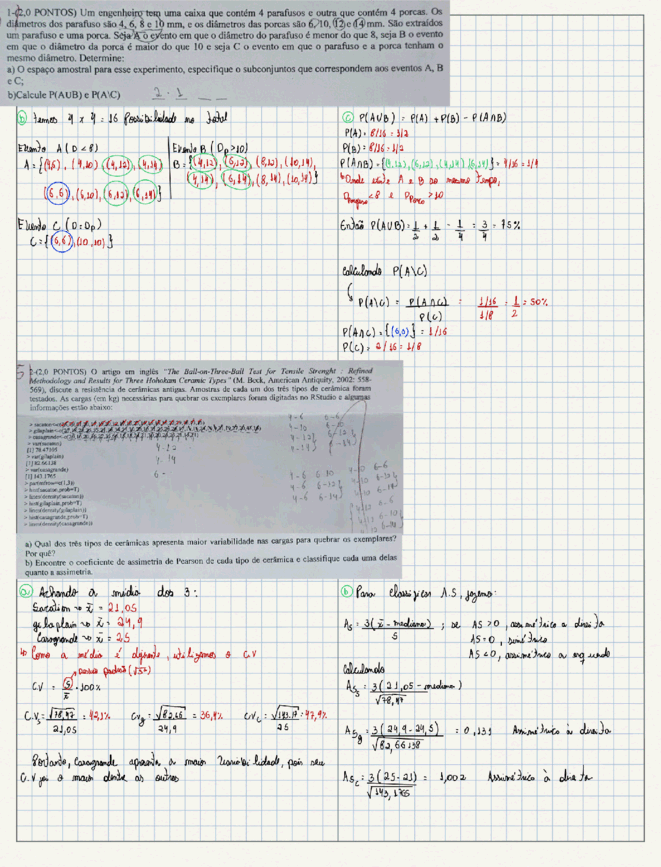 1-(2,0 PONTOS) Um engenheiro tem uma caixa que contém 4 parafusos e outra que contém 4 porcas. Os
diâmetros dos parafuso são 4, 6, 8 e 10 mm, e os diâmetros das porcas são 6, 10, 12 e 14 mm. São extraídos
um parafuso e uma porca. Seja A o evento em que o diâmetro do parafuso é menor do que 8, seja B o evento
em que o diâmetro da porca é maior do que 10 e seja C o evento em que o parafuso e a porca tenham o
mesmo diâmetro. Determine:
a) O espaço amostral para esse experimento, especifique o subconjuntos que correspondem aos eventos A, B
e C;
b)Calcule P(A∪B) e P(A\C)
2 · 1
temos 4 x 4 = 16 possibilidade no total
Evento A (D < 8)
A = {(4,6), (4,10), (4,12), (4,14)
(6,6), (6,10), (6,12), (6,14)}
Evento B (Dp > 10)
B = {(4,12), (6,12), (8,12), (10,12),
(4,14), (6,14), (8,14), (10,14)}
Evento C (D = Dp)
C = {(6,6), (10,10)}
P(A∪B) = P(A) + P(B) - P(A∩B)
P(A) = 8/16 = 1/2
P(B) = 8/16 = 1/2
P(A∩B) = {(4,12), (6,12), (4,14), (6,14)} = 4/16 = 1/4
Onde existe A e B ao mesmo tempo,
<8 e >10
Então P(A∪B) = 1/2 + 1/2 - 1/4 = 3/4 = 75%
Calculando P(A\C)
P(A\C) = P(A∩C)/P(C) = 1/16 / 1/8 = 1/2 = 50%
P(A∩C) = {(6,6)} = 1/16
P(C) = 2/16 = 1/8
2-(2,0 PONTOS) O artigo em inglês "The Ball-on-Three-Ball Test for Tensile Strenght : Refined
Methodology and Results for Three Hohokam Ceramic Types" (M. Beck, American Antiquity, 2002: 558-
569), discute a resistência de cerâmicas antigas. Amostras de cada um dos três tipos de cerâmica foram
testados. As cargas (em kg) necessárias para quebrar os exemplares foram digitadas no RStudio e algumas
informações estão abaixo:
> var(sacaton)
[1] 78.47105
> var(gilaplain)
[1] 82.66138
> var(casagrande)
[1] 143.1765
> par(mfrow=c(1,3))
> hist(sacaton,prob=T)
> lines(density(sacaton))
> hist(gilaplain,prob=T)
> lines(density(gilaplain))
> hist(casagrande,prob=T)
> lines(density(casagrande))
a) Qual dos três tipos de cerâmicas apresenta maior variabilidade nas cargas para quebrar os exemplares?
Por quê?
b) Encontre o coeficiente de assimetria de Pearson de cada tipo de cerâmica e classifique cada uma delas
quanto a assimetria.
a) Achando a média dos 3:
Sacation → x̄ = 21,05
gilaplain → x̄ = 24,9
Casagrande → x̄ = 25
Como a média é diferente, utilizamos o CV
desvio padrão (√S²)
CV = S/x̄ · 100%
C.Vs = √78,47/21,05 = 42,1%
CVg = √82,66/24,9 = 36,4%
CVc = √143,17/25 = 47,9%
Portando, Casagrande apresenta a maior variabilidade, pois seu
C.V foi o maior dentre as outras
b) Para classificar A.S, fazemos:
As = 3(x̄ - mediana)/S ; se AS > 0, assimétrico a direita
AS = 0, simétrico
AS < 0, assimétrico a esquerda
Calculando
ASs = 3(21,05 - mediana)/√78,47
ASg = 3(24,9 - 24,5)/√82,66138 = 0,131 Assimétrico à direita
ASc = 3(25-21)/√143,1765 = 1,002 Assimétrico à direita